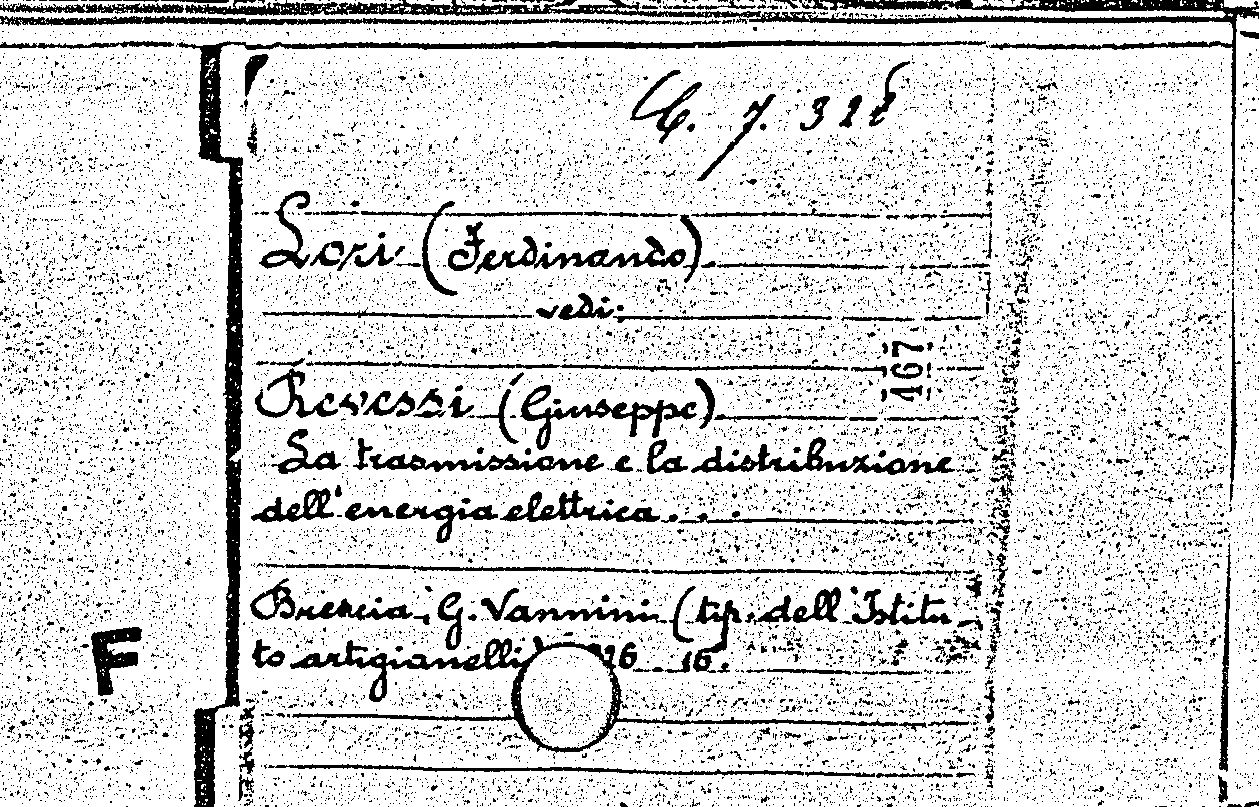 7. 32
Lori (Ferdinando).
vedi:
167
Revessi (Giuseppe).
La trasmissione e la distribuzione
dell'energia elettrica . . .
Brescia, G. Vannini (tip. dell'Istitu-
to artigianelli) 16.
F